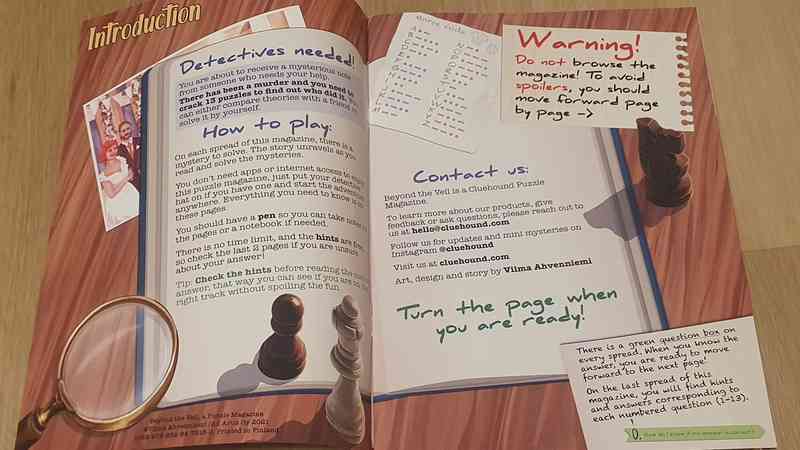 Introduction
Detectives needed!
You are about to receive a mysterious note
from someone who needs your help.
There has been a murder and you need to
crack 13 puzzles to find out who did it. You
can either compare theories with a friend or
solve it by yourself.
How to play:
On each spread of this magazine, there is a
mystery to solve. The story unravels as you
read and solve the mysteries.
You don't need apps or internet access to enjoy
this puzzle magazine, just put your detective
hat on if you have one and start the adventure
anywhere. Everything you need to know is on
these pages.
You should have a pen so you can take notes on
the pages or a notebook if needed.
There is no time limit, and the hints are free,
so check the last 2 pages if you are unsure
about your answer!
Tip: Check the hints before reading the
answer, that way you can see if you are on the
right track without spoiling the fun.
Beyond the Veil, a Puzzle Magazine
Printed in Finland
Morse code
Warning!
Do not browse the
magazine! To avoid
spoilers, you should
move forward page
by page ->
Contact us:
Beyond the Veil is a Cluehound Puzzle
Magazine.
To learn more about our products, give
feedback or ask questions, please reach out to
us at hello@cluehound.com
Follow us for updates and mini mysteries on
Instagram @cluehound
Visit us at cluehound.com
Art, design and story by Vilma Ahvenniemi
Turn the page when
you are ready!
There is a green question box on
every spread. When you know the
answer, you are ready to move
forward to the next page!
On the last spread of this
magazine, you will find hints
and answers corresponding to
each numbered question (1-13).
0.